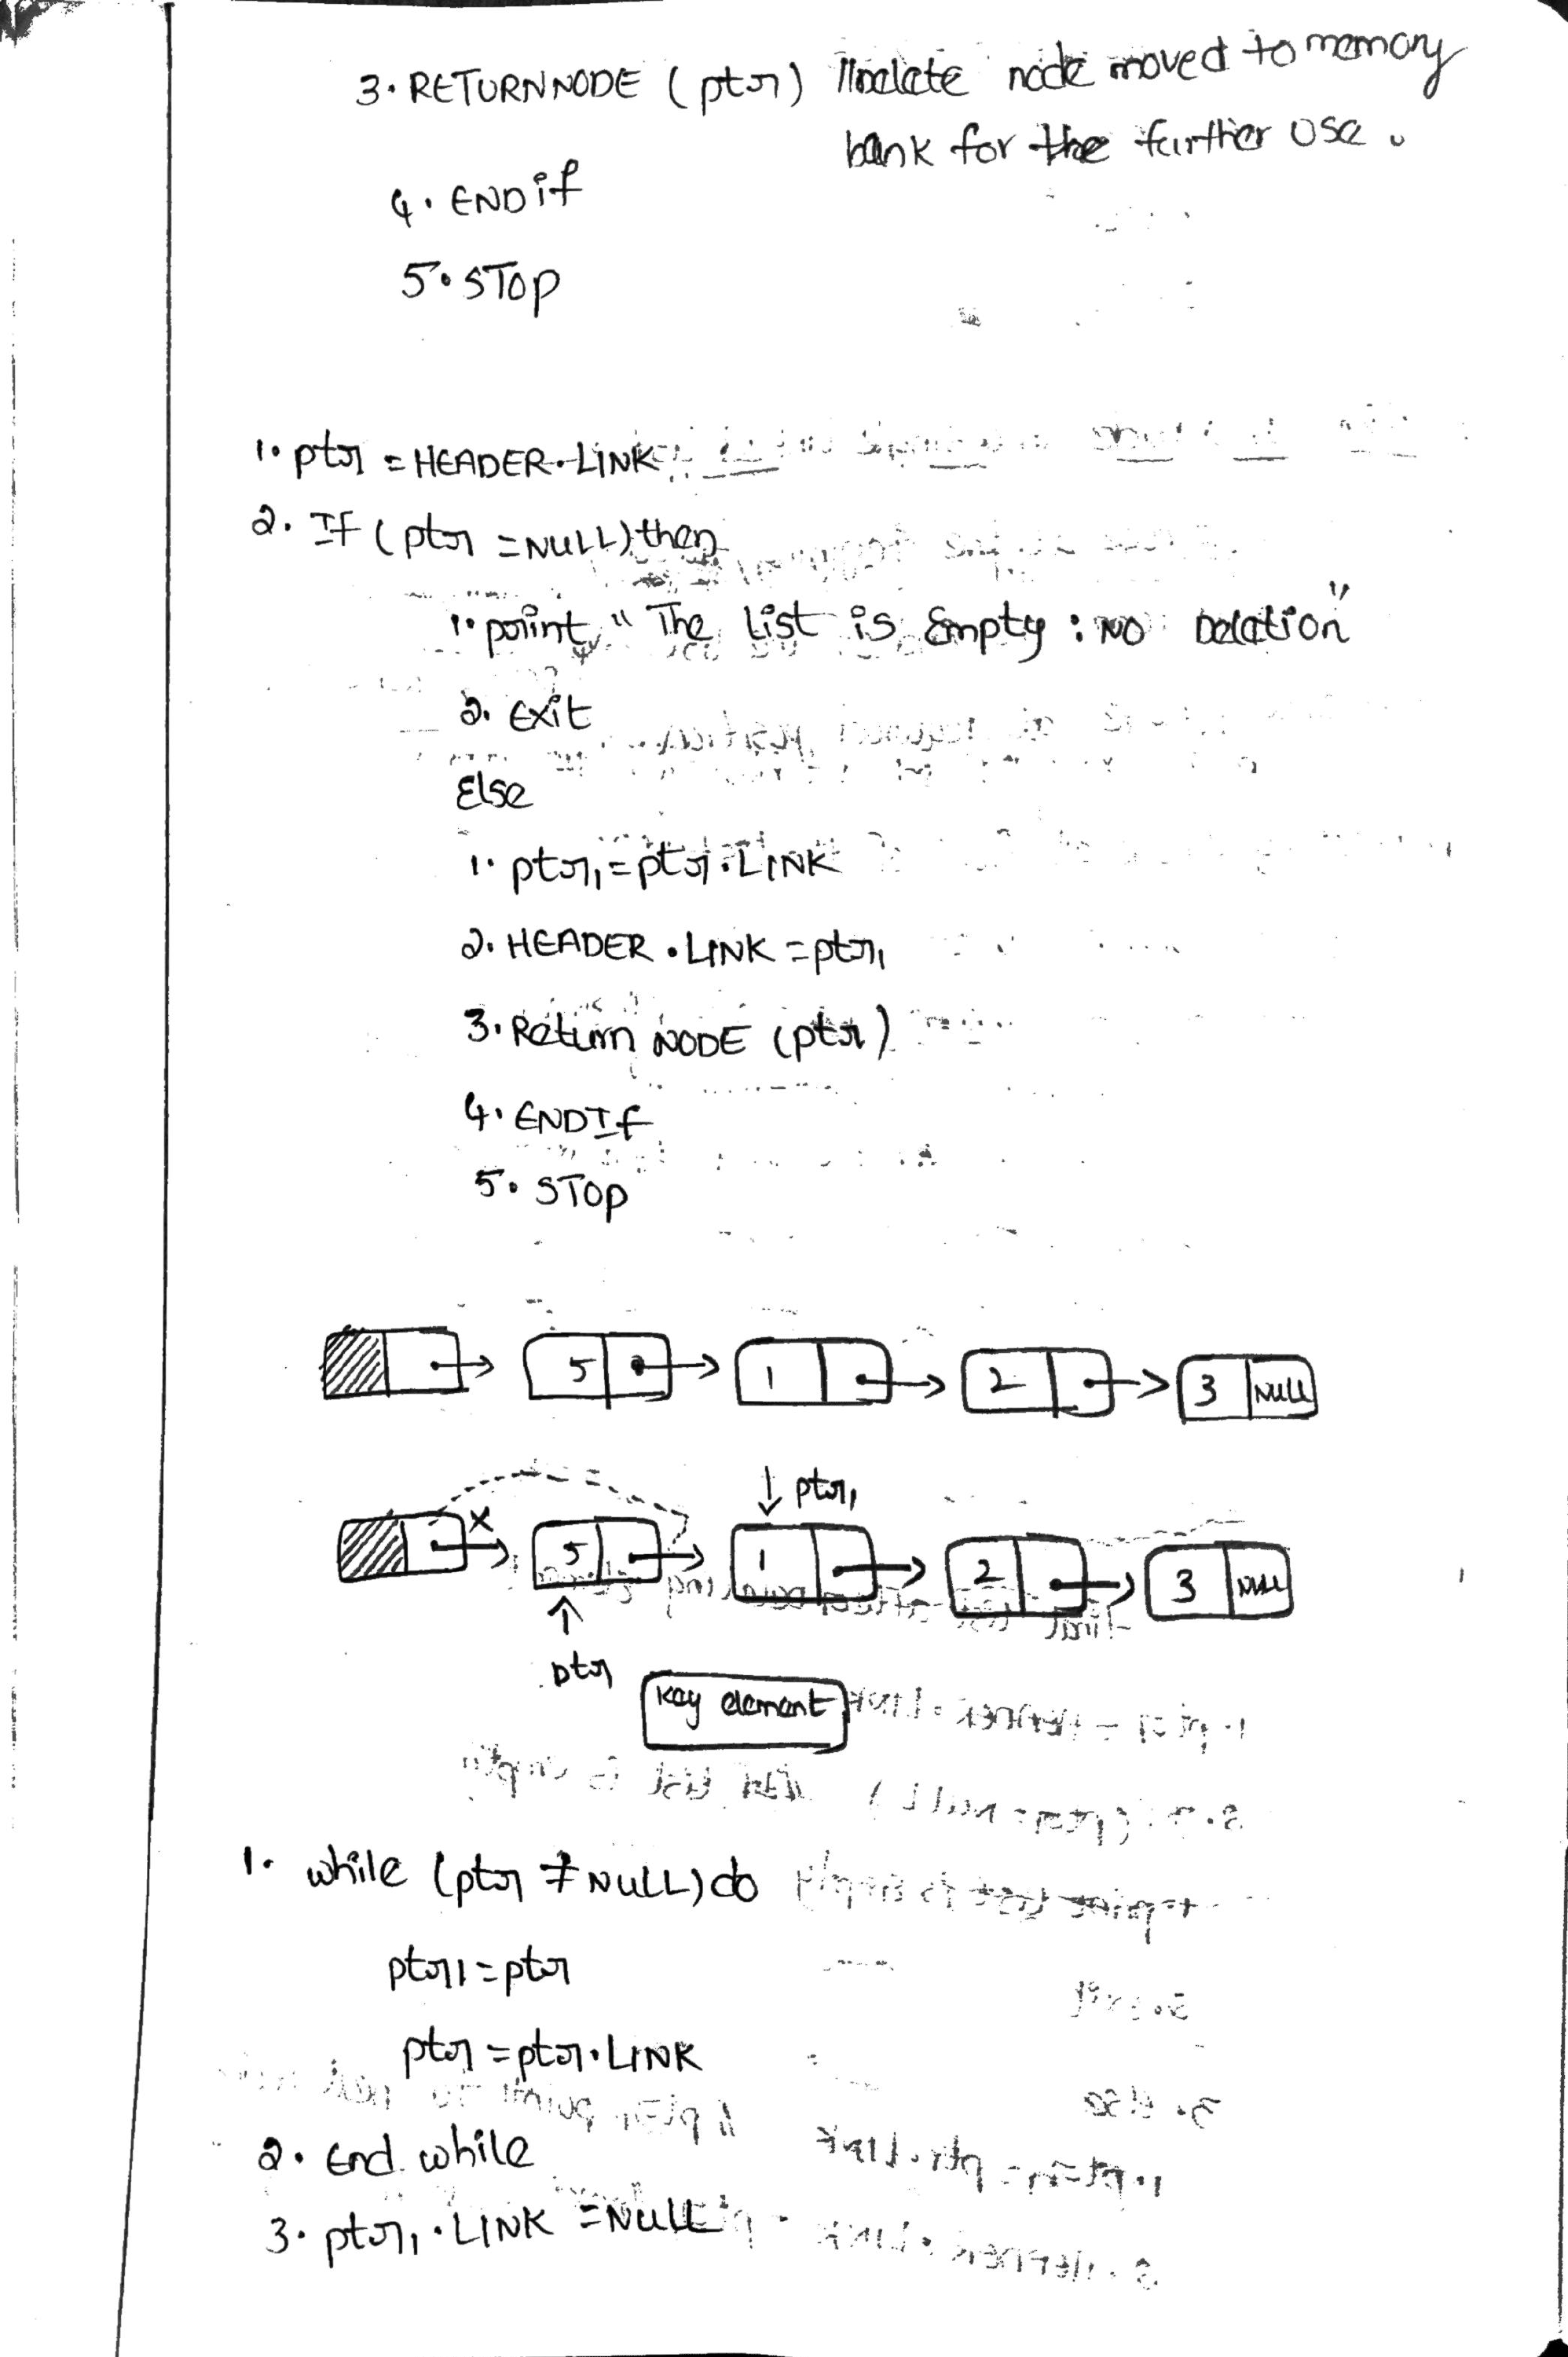 3. RETURNNODE (ptr) //Delete node moved to memory
bank for the further use.
4. ENDif
5. STOP
1. ptr = HEADER.LINK
2. If (ptr = NULL) then
1. print "The List is Empty : NO Deletion"
2. Exit
Else
1. ptr1 = ptr.LINK
2. HEADER.LINK = ptr1
3. Return NODE (ptr)
4. ENDIf
5. STOP
5 1 2 3 NULL
ptr1
X
5 1 2 3 NULL
ptr
Key element
1. while (ptr ≠ NULL) do
ptr1 = ptr
ptr = ptr.LINK
2. End while
3. ptr1.LINK = NULL